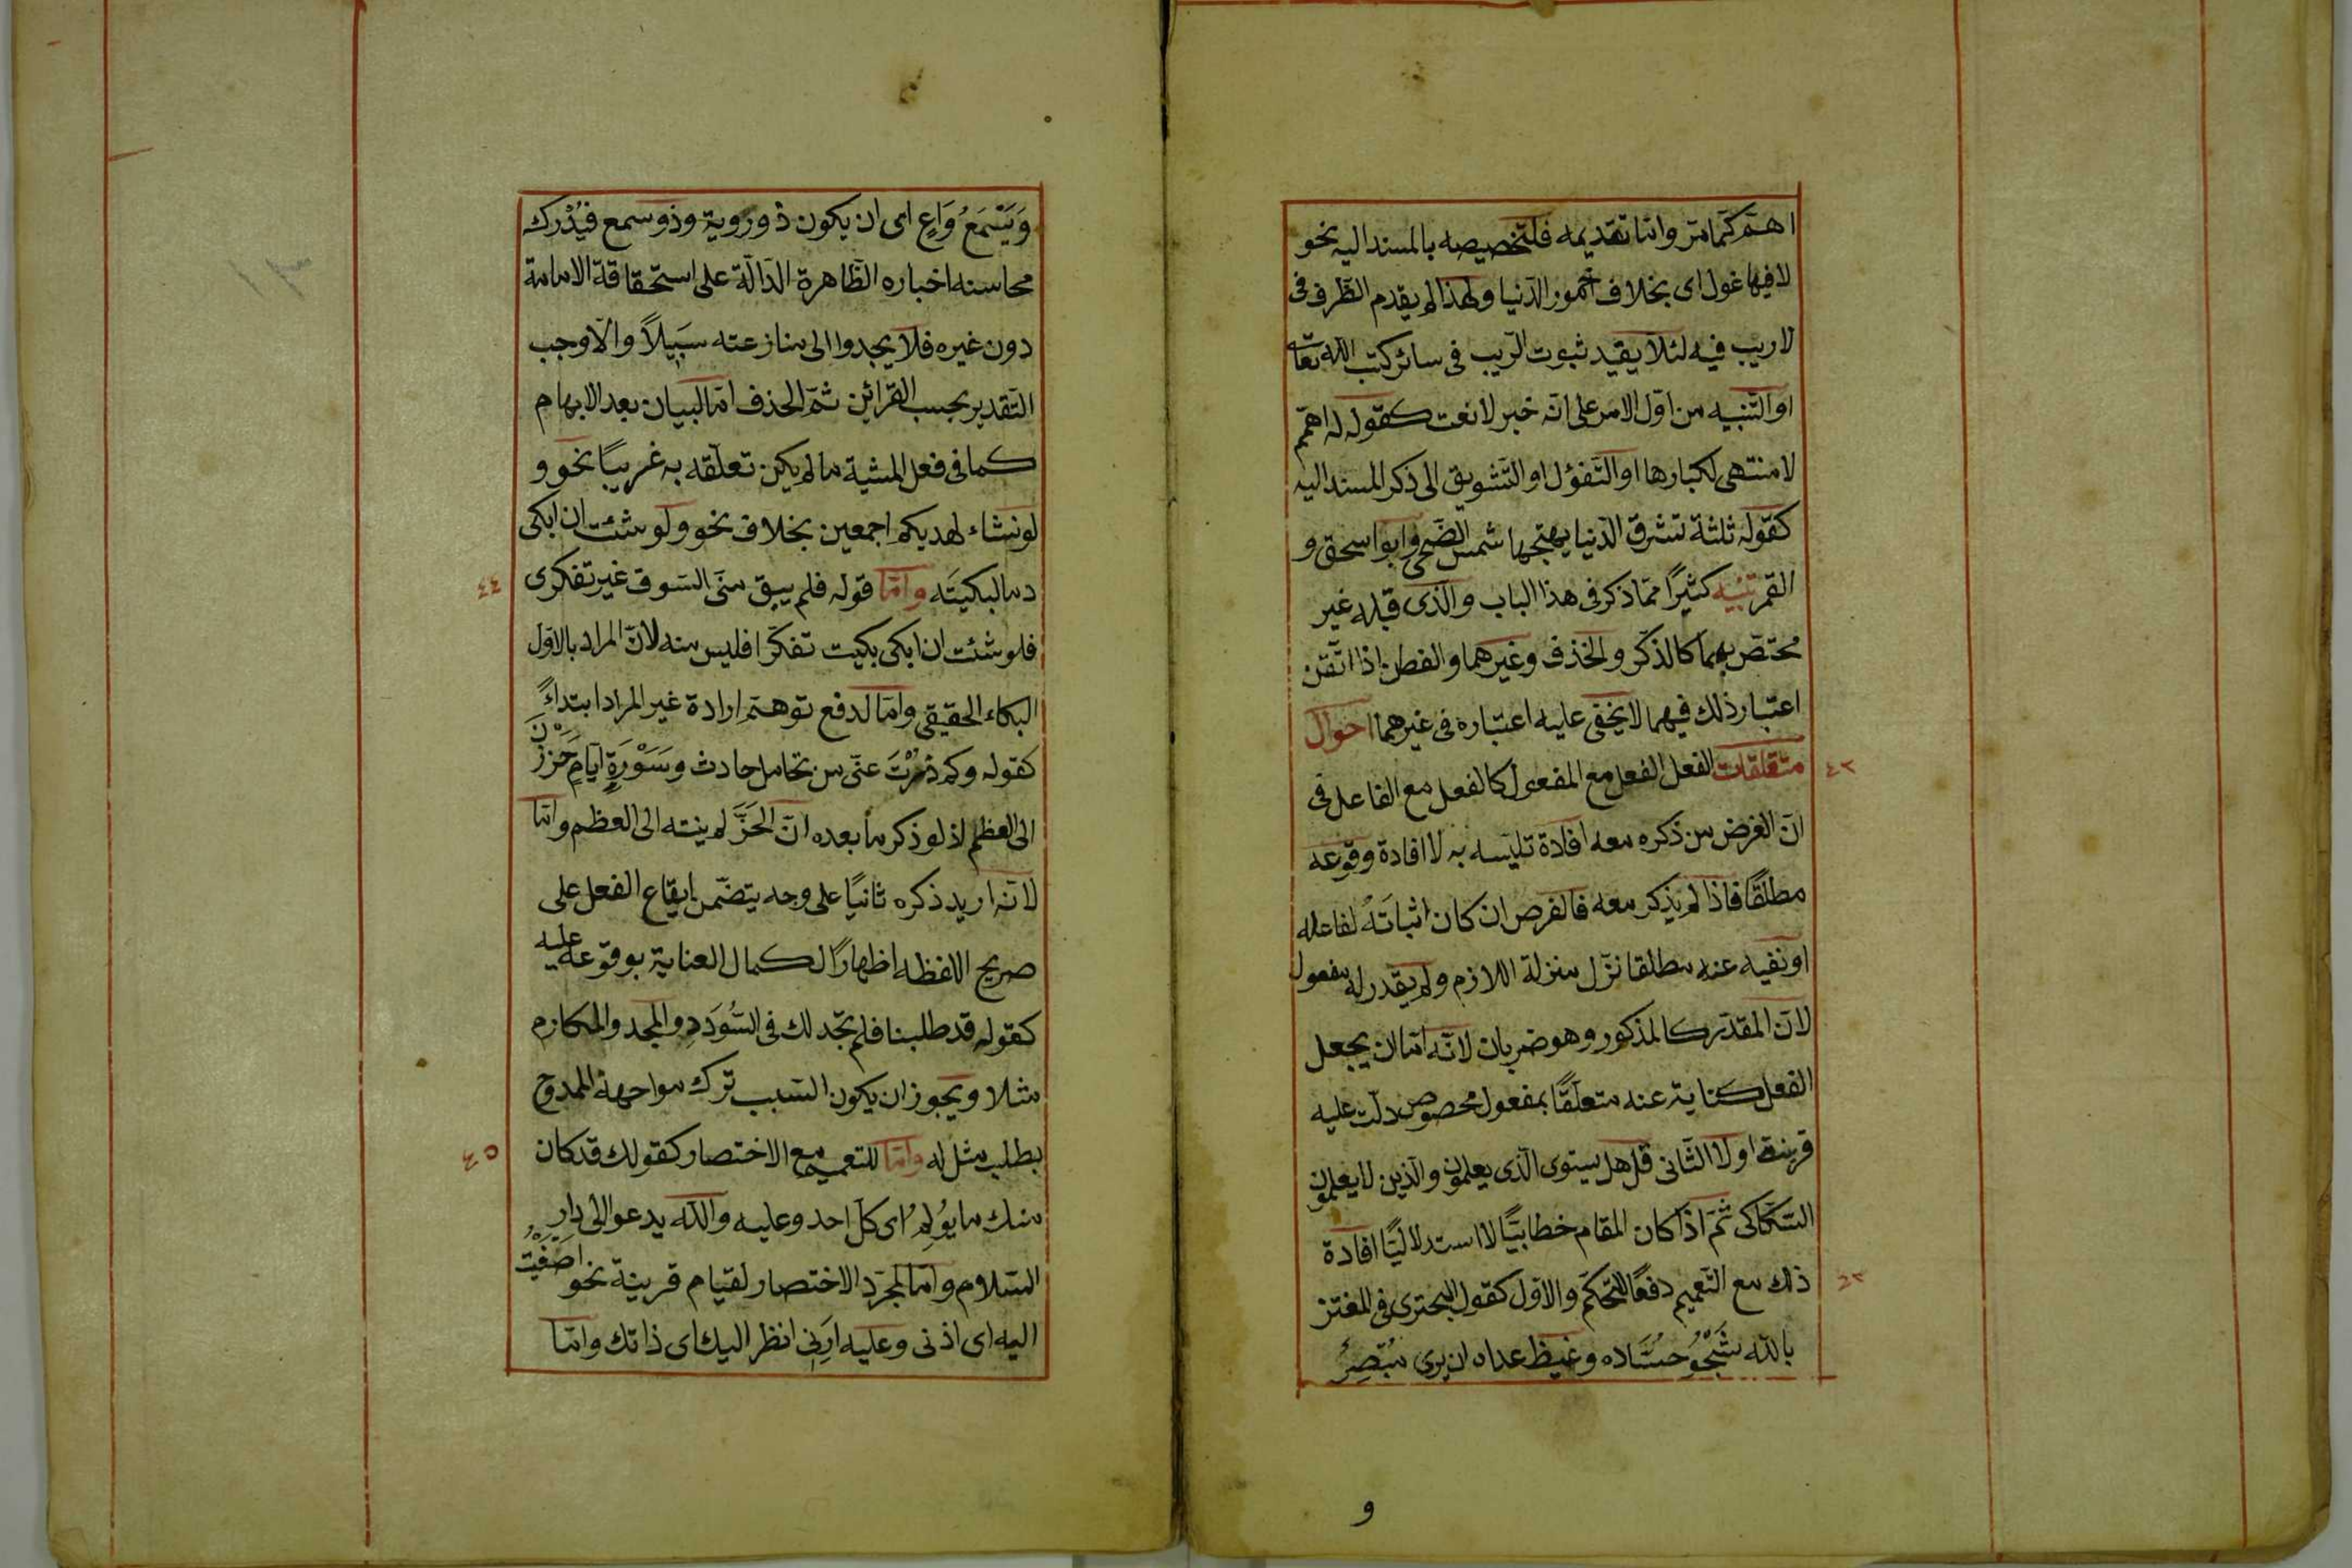 اهم كما مر واما تقديمه فلتخصيصه بالمسند اليه نحو
لا فيها غول اى بخلاف خمور الدنيا ولهذا لم يقدم الظرف فى
لا ريب فيه لئلا يقيد ثبوت الريب فى سائر كتب الله تعا
او التنبيه من اول الامر على انه خبر لا نعت كقوله له همم
لا منتهى لكبارها او التفؤل او التشويق الى ذكر المسند اليه
كقوله ثلثة تشرق الدنيا ببهجتها شمس الضحى وابو اسحق و
القمر تنبيه كثيرًا مما ذكر فى هذا الباب والذى قبله غير
مختص بهما كالذكر والحذف وغيرهما والفطن اذا اتقن
اعتبار ذلك فيهما لا يخفى عليه اعتباره فى غيرهما احوال
متعلقات الفعل الفعل مع المفعول كالفعل مع الفاعل فى ٤٢
ان الغرض من ذكره معه افادة تلبسه به لا افادة وقوعه
مطلقًا فاذا لم يذكر معه فالغرض ان كان اثباتَهُ لفاعله
او نفيه عنه مطلقا نزل منزلة اللازم ولم يقدر له مفعول
لان المقدر كالمذكور وهو ضربان لانه اما ان يجعل
الفعل كناية عنه متعلقًا بمفعول مخصوص دلت عليه
قرينة اولا الثانى قل هل يستوى الذى يعلمون والذين لا يعلمون
السكاكى ثم اذا كان المقام خطابيًا لا استدلاليًا افادة
ذلك مع التعميم دفعًا للتحكم والاول كقول البحترى فى المعتز
بالله شَجْوُ حسّاده وغيظ عداه ان يرى مُبْصِرٌ
و
وَيَسْمَعُ وَاعٍ اى ان يكون ذو روية وذو سمع فيُدْرك
محاسنه اخباره الظاهرة الدالة على استحقاقة الامامة
دون غيره فلا يجدوا الى منازعته سبيلاً والا وجب
التقدير بحسب القرائن ثم الحذف اما للبيان بعد الابهام
كما فى فعل المشية ما لم يكن تعلقه به غريبًا نحو و
لو نشاء لهديكم اجمعين بخلاف نحو ولو شئت ان ابكى
دما لبكيتَه واما قوله فلم يبق منى الشوق غير تفكرى ٤٤
فلو شئت ان ابكى بكيت تفكرا فليس منه لان المراد بالاول
البكاء الحقيقى واما لدفع توهم ارادة غير المراد ابتداءً
كقوله وكم ذُدْتَ عنى من تحامل حادث وسَوْرَةِ ايامٍ حَززْنَ
الى العظم اذ لو ذكر ما بعده ان الحَزَّ لم ينته الى العظم واما
لانه اريد ذكره ثانيًا على وجه يتضمن ايقاع الفعل على
صريح اللفظه اظهارًا لكمال العناية بوقوعه عليه
كقوله قد طلبنا فلم نجد لك فى السُّودَدِ والمجد والمكارم
مثلا ويجوز ان يكون السبب ترك مواجهة الممدوح
بطلب مثل له واما للتعميم مع الاختصار كقولك قد كان ٤٥
منك ما يؤلِمُ اى كل احد وعليه والله يدعو الى دار
السلام واما لمجرد الاختصار لقيام قرينة نحو اصغيت
اليه اى اذنى وعليه ارنى انظر اليك اى ذاتك واما